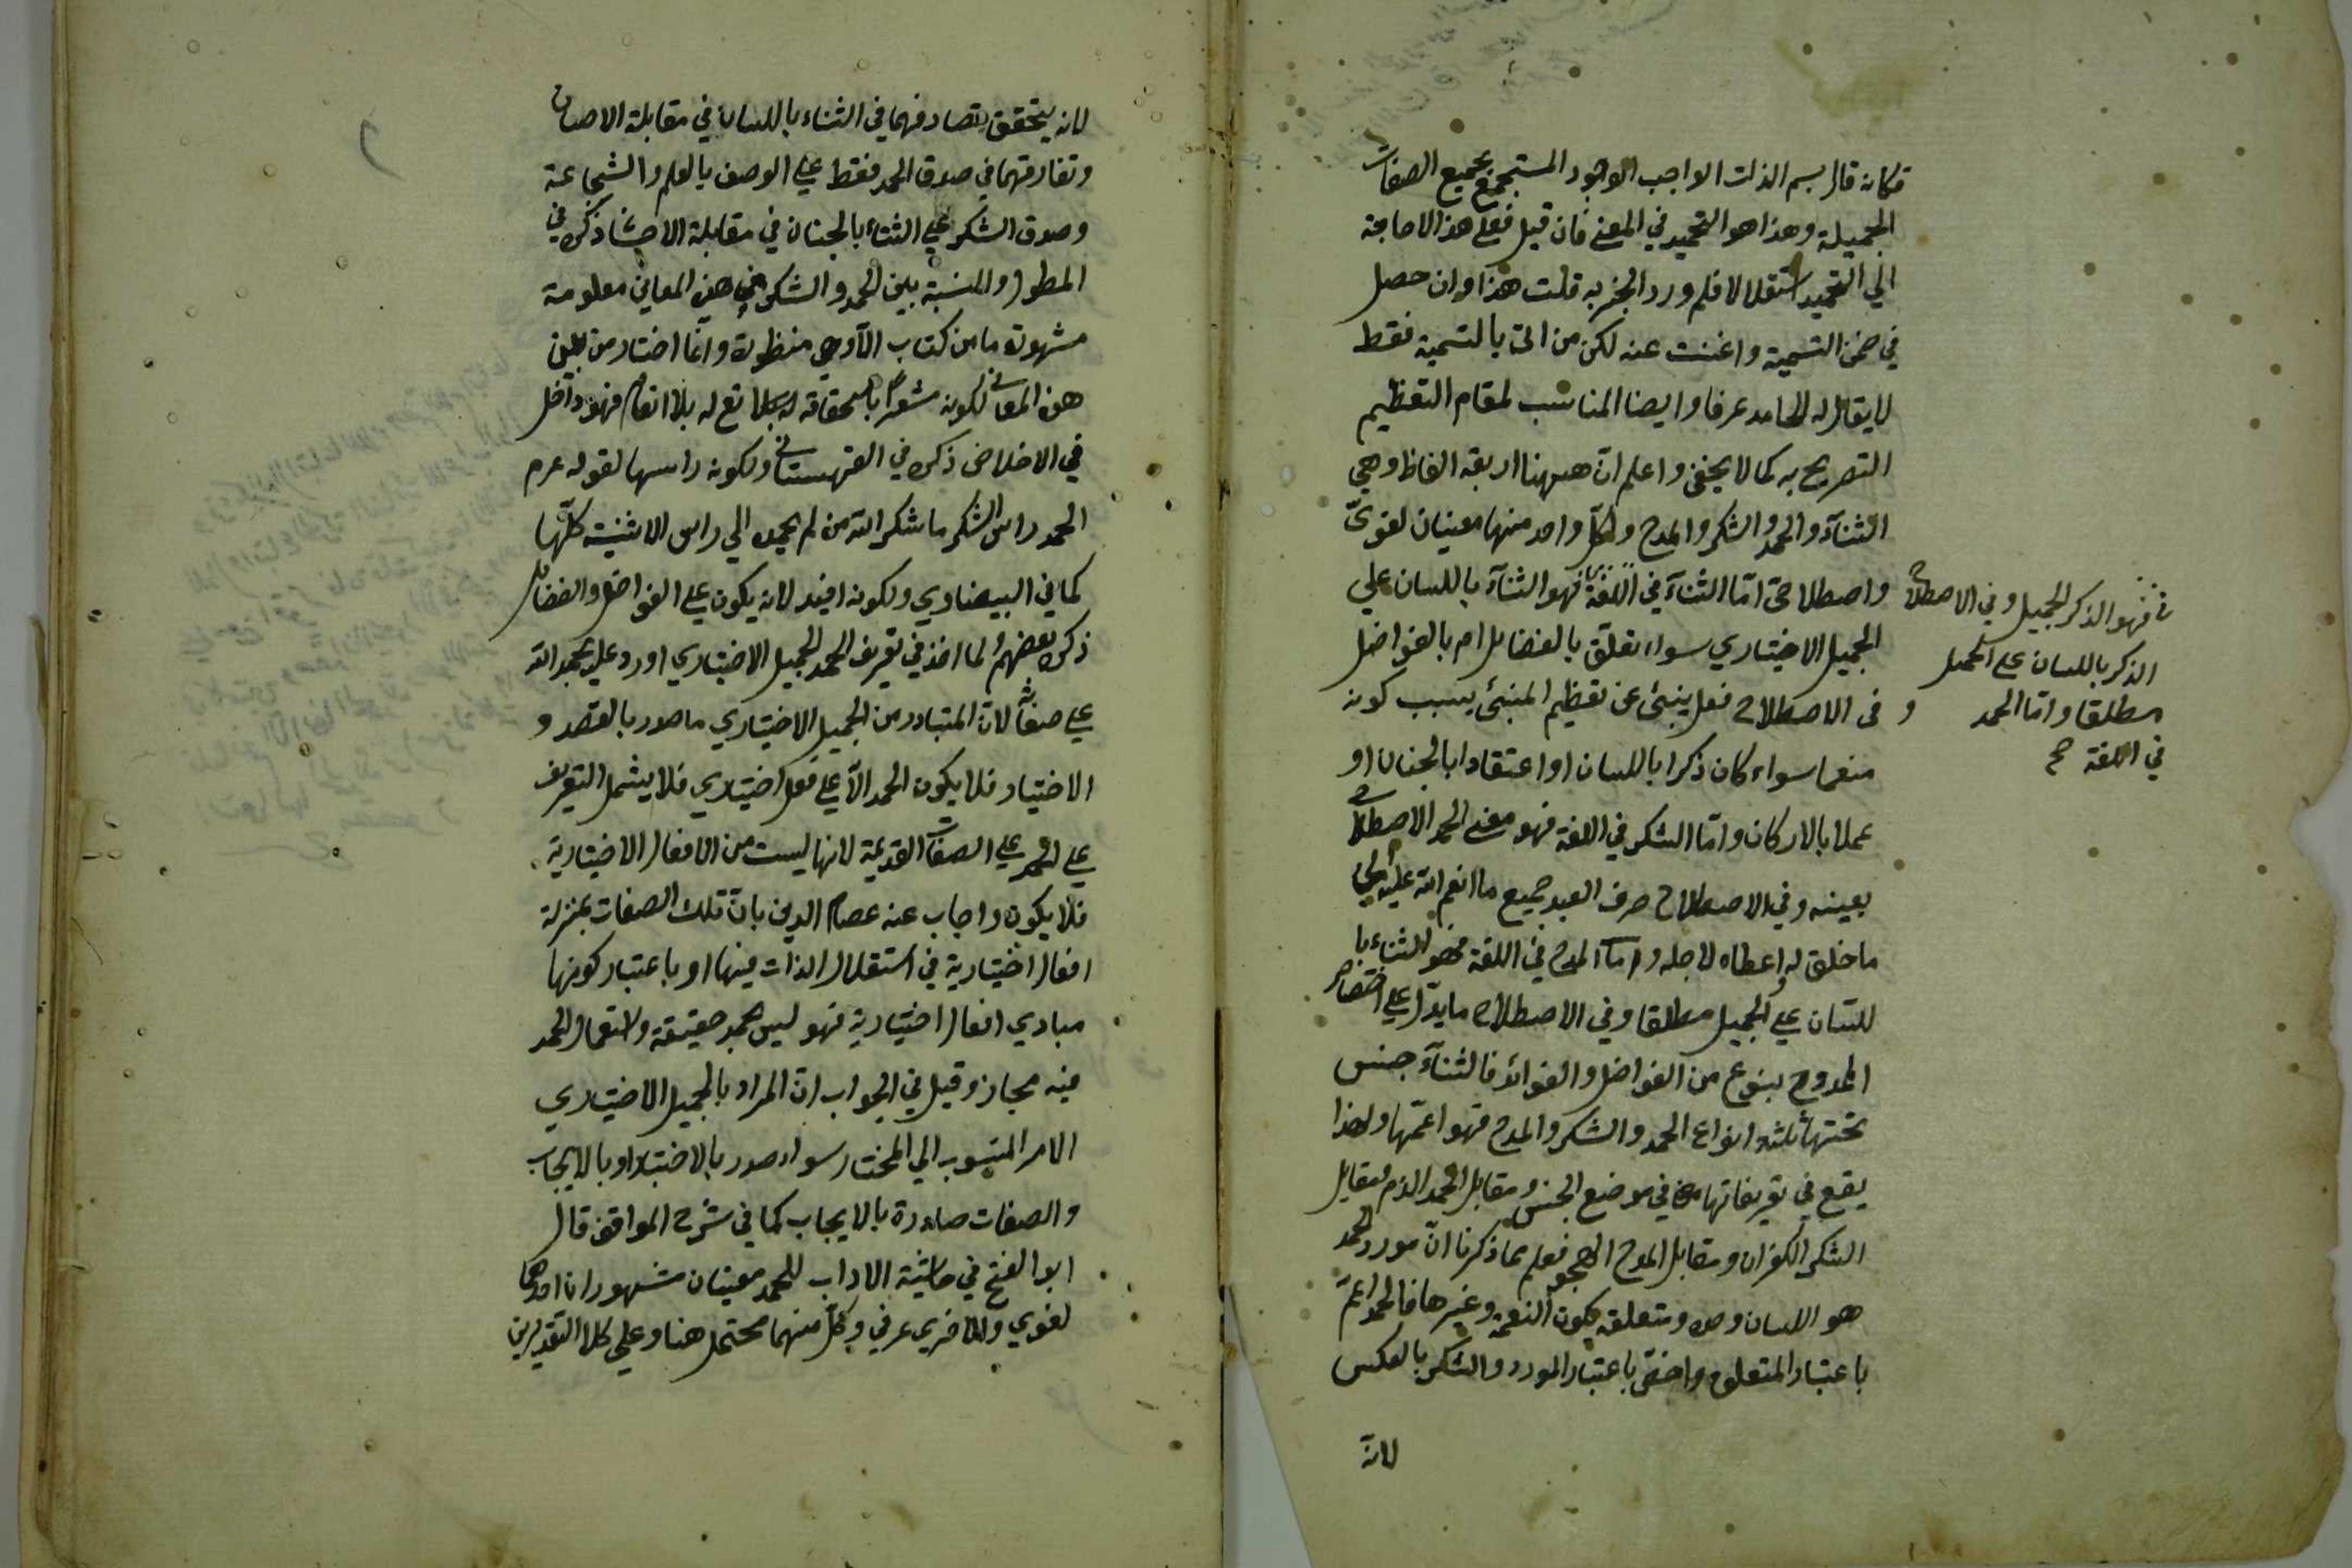 فكانه قال بسم الذات الواجب الوجود المستجمع بجميع الصفات
الجميلة وهذا هو التحميد في المعنى فان قيل فعلى هذا لا حاجة
الي التحميد استقلالا فلم ورد الخبر به قلت هذا وان حصل
في ضمن التسمية واغنت عنه لكن من اتى بالتسمية فقط
لا يقال له الحامد عرفا وايضا المناسب لمقام التعظيم
التصريح به كما لا يخفى واعلم انّ ههنا اربعة الفاظ وهي
الثنآء والحمد والشكر والمدح ولكلّ واحد منها معنيان لغويّ
واصطلاحيّ امّا الثنآء في اللغة فهو الثنآء باللسان علي
فهو الذكر الجميل وفي الاصطلاح
الذكر باللسان على الجميل
مطلقا وامّا الحمد
في اللغة صح
الجميل الاختياري سواء تعلّق بالفضايل ام بالفواضل
و في الاصطلاح فعل ينبئ عن تعظيم المنبئ بسبب كونه
منعما سواء كان ذكرا باللسان او اعتقادا بالجنان او
عملا بالاركان وامّا الشكر في اللغة فهو معنى الحمد الاصطلاحي
بعينه وفي الاصطلاح صرف العبد جميع ما انعم الله عليه الى
ما خلق له واعطاه لاجله وامّا المدح في اللغة فهو الثناء با
للسان علي الجميل مطلقا وفي الاصطلاح ما يدّل علي اختصاص
الممدوح بنوع من الفواضل والفوائد فالثنآء جنس
تحتها ثلثه انواع الحمد والشكر والمدح فهو اعمّها ولهذا
يقع في تعريفاتها في موضع الجنس ومقابل الحمد الذم ومقابل
الشكر الكفران ومقابل المدح الهجو فعلم مما ذكرنا انّ مورد الحمد
هو اللسان وحده ومتعلقه يكون النعمة وغيرها فالحمد اعمّ
باعتبار المتعلق واخصّ باعتبار المورد والشكر بالعكس
لانه
لانه يتحقق تصادفهما في الثناء باللسان في مقابلة الاحسان
وتفارقهما في صدق الحمد فقط علي الوصف بالعلم والشجاعة
وصدق الشكر علي الثناء بالجنان في مقابلة الاحسان ذكره في
المطول والنسبة بين الحمد والشكر في هذه المعاني معلومة
مشهورة ما من كتاب الّا وهي منظورة وانّما اختار من بين
هذه المعاني لكونه مشعرا باستحقاقه له بلا انعام فهو داخل
في الاخلاص ذكره في القهستاني ولكونه راسها لقوله عرم
الحمد راس الشكر ما شكر الله من لم يحمده الي راس الاثنيته كلّها
كما في البيضاوي ولكونه افيد لانه يكون علي الفواضل والفضايل
ذكره بعضهم ولما اخذ في تعريف الحمد الجميل الاختياري اورد عليه بحمد الله
علي صفاته لانّ المتبادر من الجميل الاختياري ما صدر بالقصد و
الاختيار فلا يكون الحمد الّا علي فعل اختياري فلا يشمل التعريف
علي الحمد علي الصفات القديمة لانها ليست من الافعال الاختيارية
فلا يكون واجاب عنه عصام الدين بانّ تلك الصفات بمنزلة
افعال اختيارية في استقلال الذات فيها او باعتبار كونها
مبادي افعال اختيارية فهو ليس بحمد حقيقة واستعمال الحمد
فيه مجاز وقيل في الجواب انّ المراد بالجميل الاختياري
الامر المنسوب الي المختار سواء صدر بالاختيار او بالايجاب
والصفات صادرة بالايجاب كما في شرح المواقف قال
ابو الفتح في حاشية الاداب للحمد معنيان مشهوران احدهما
لغوي والاخرى عرفي وكلّ منهما محتمل هنا وعلي كلا التقديرين